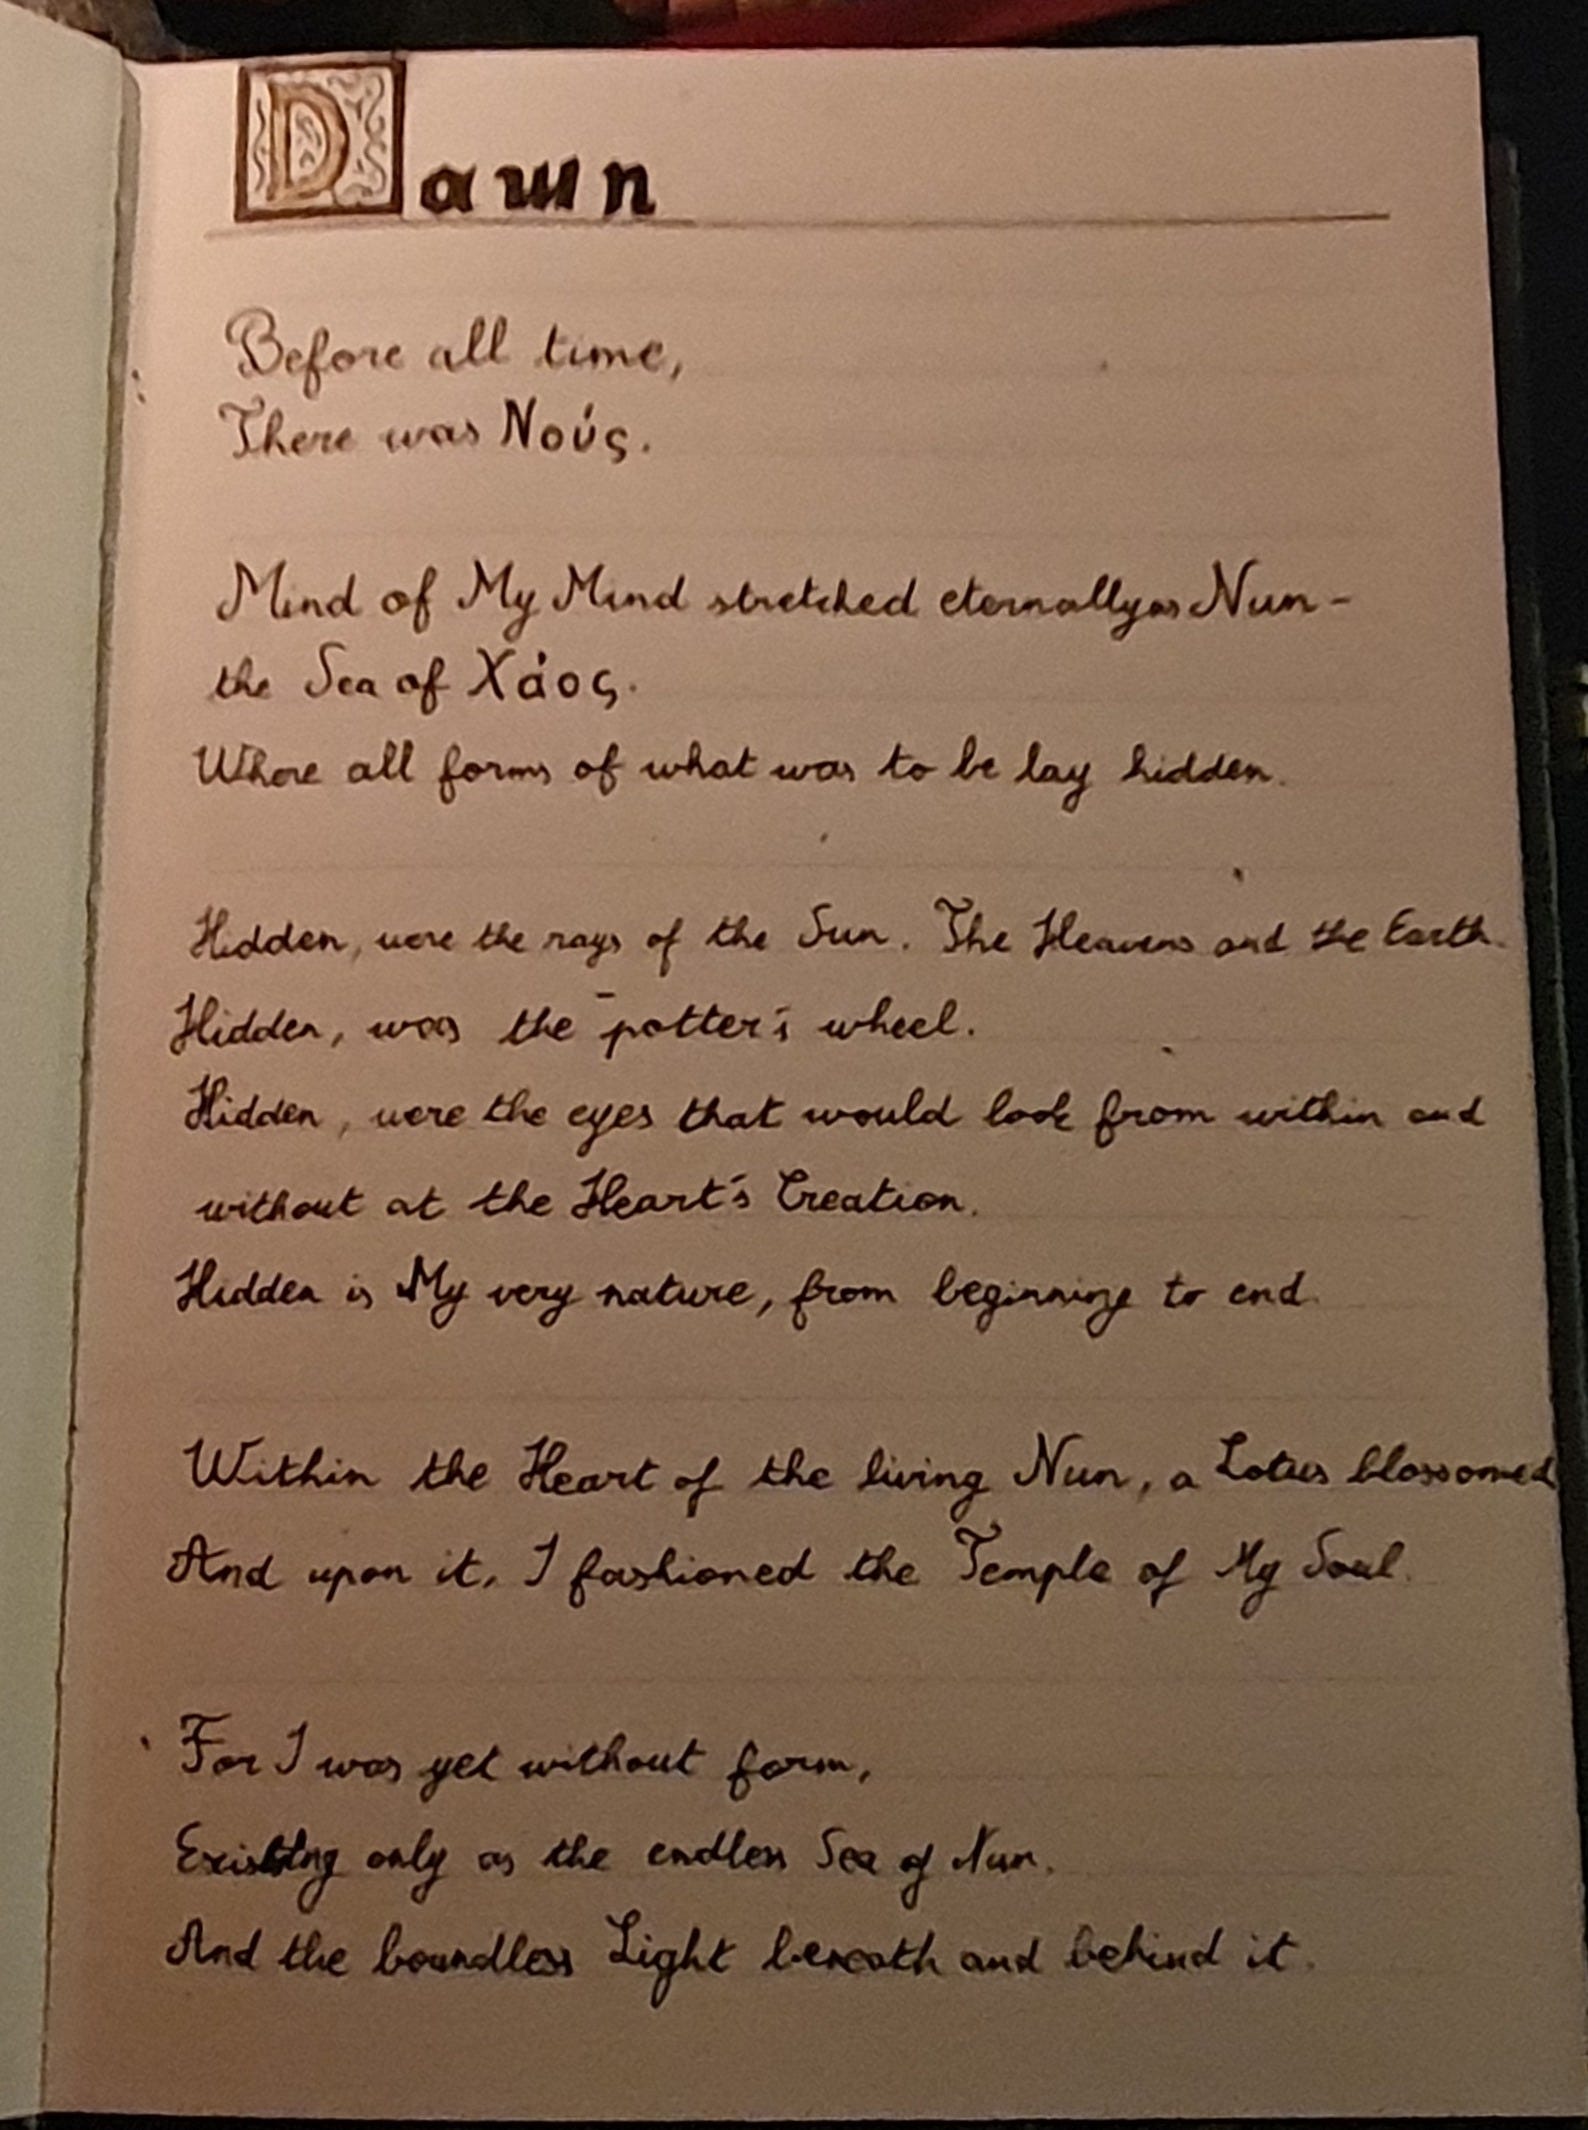 Dawn
Before all time,
There was Νούς.
Mind of My Mind stretched eternally as Nun -
the Sea of Χάος.
Where all forms of what was to be lay hidden.
Hidden, were the rays of the Sun. The Heavens and the Earth.
Hidden, was the potter's wheel.
Hidden, were the eyes that would look from within and
without at the Heart's Creation.
Hidden is My very nature, from beginning to end.
Within the Heart of the living Nun, a Lotus blossomed
And upon it, I fashioned the Temple of My Soul.
For I was yet without form,
Existing only as the endless Sea of Nun.
And the boundless Light beneath and behind it.